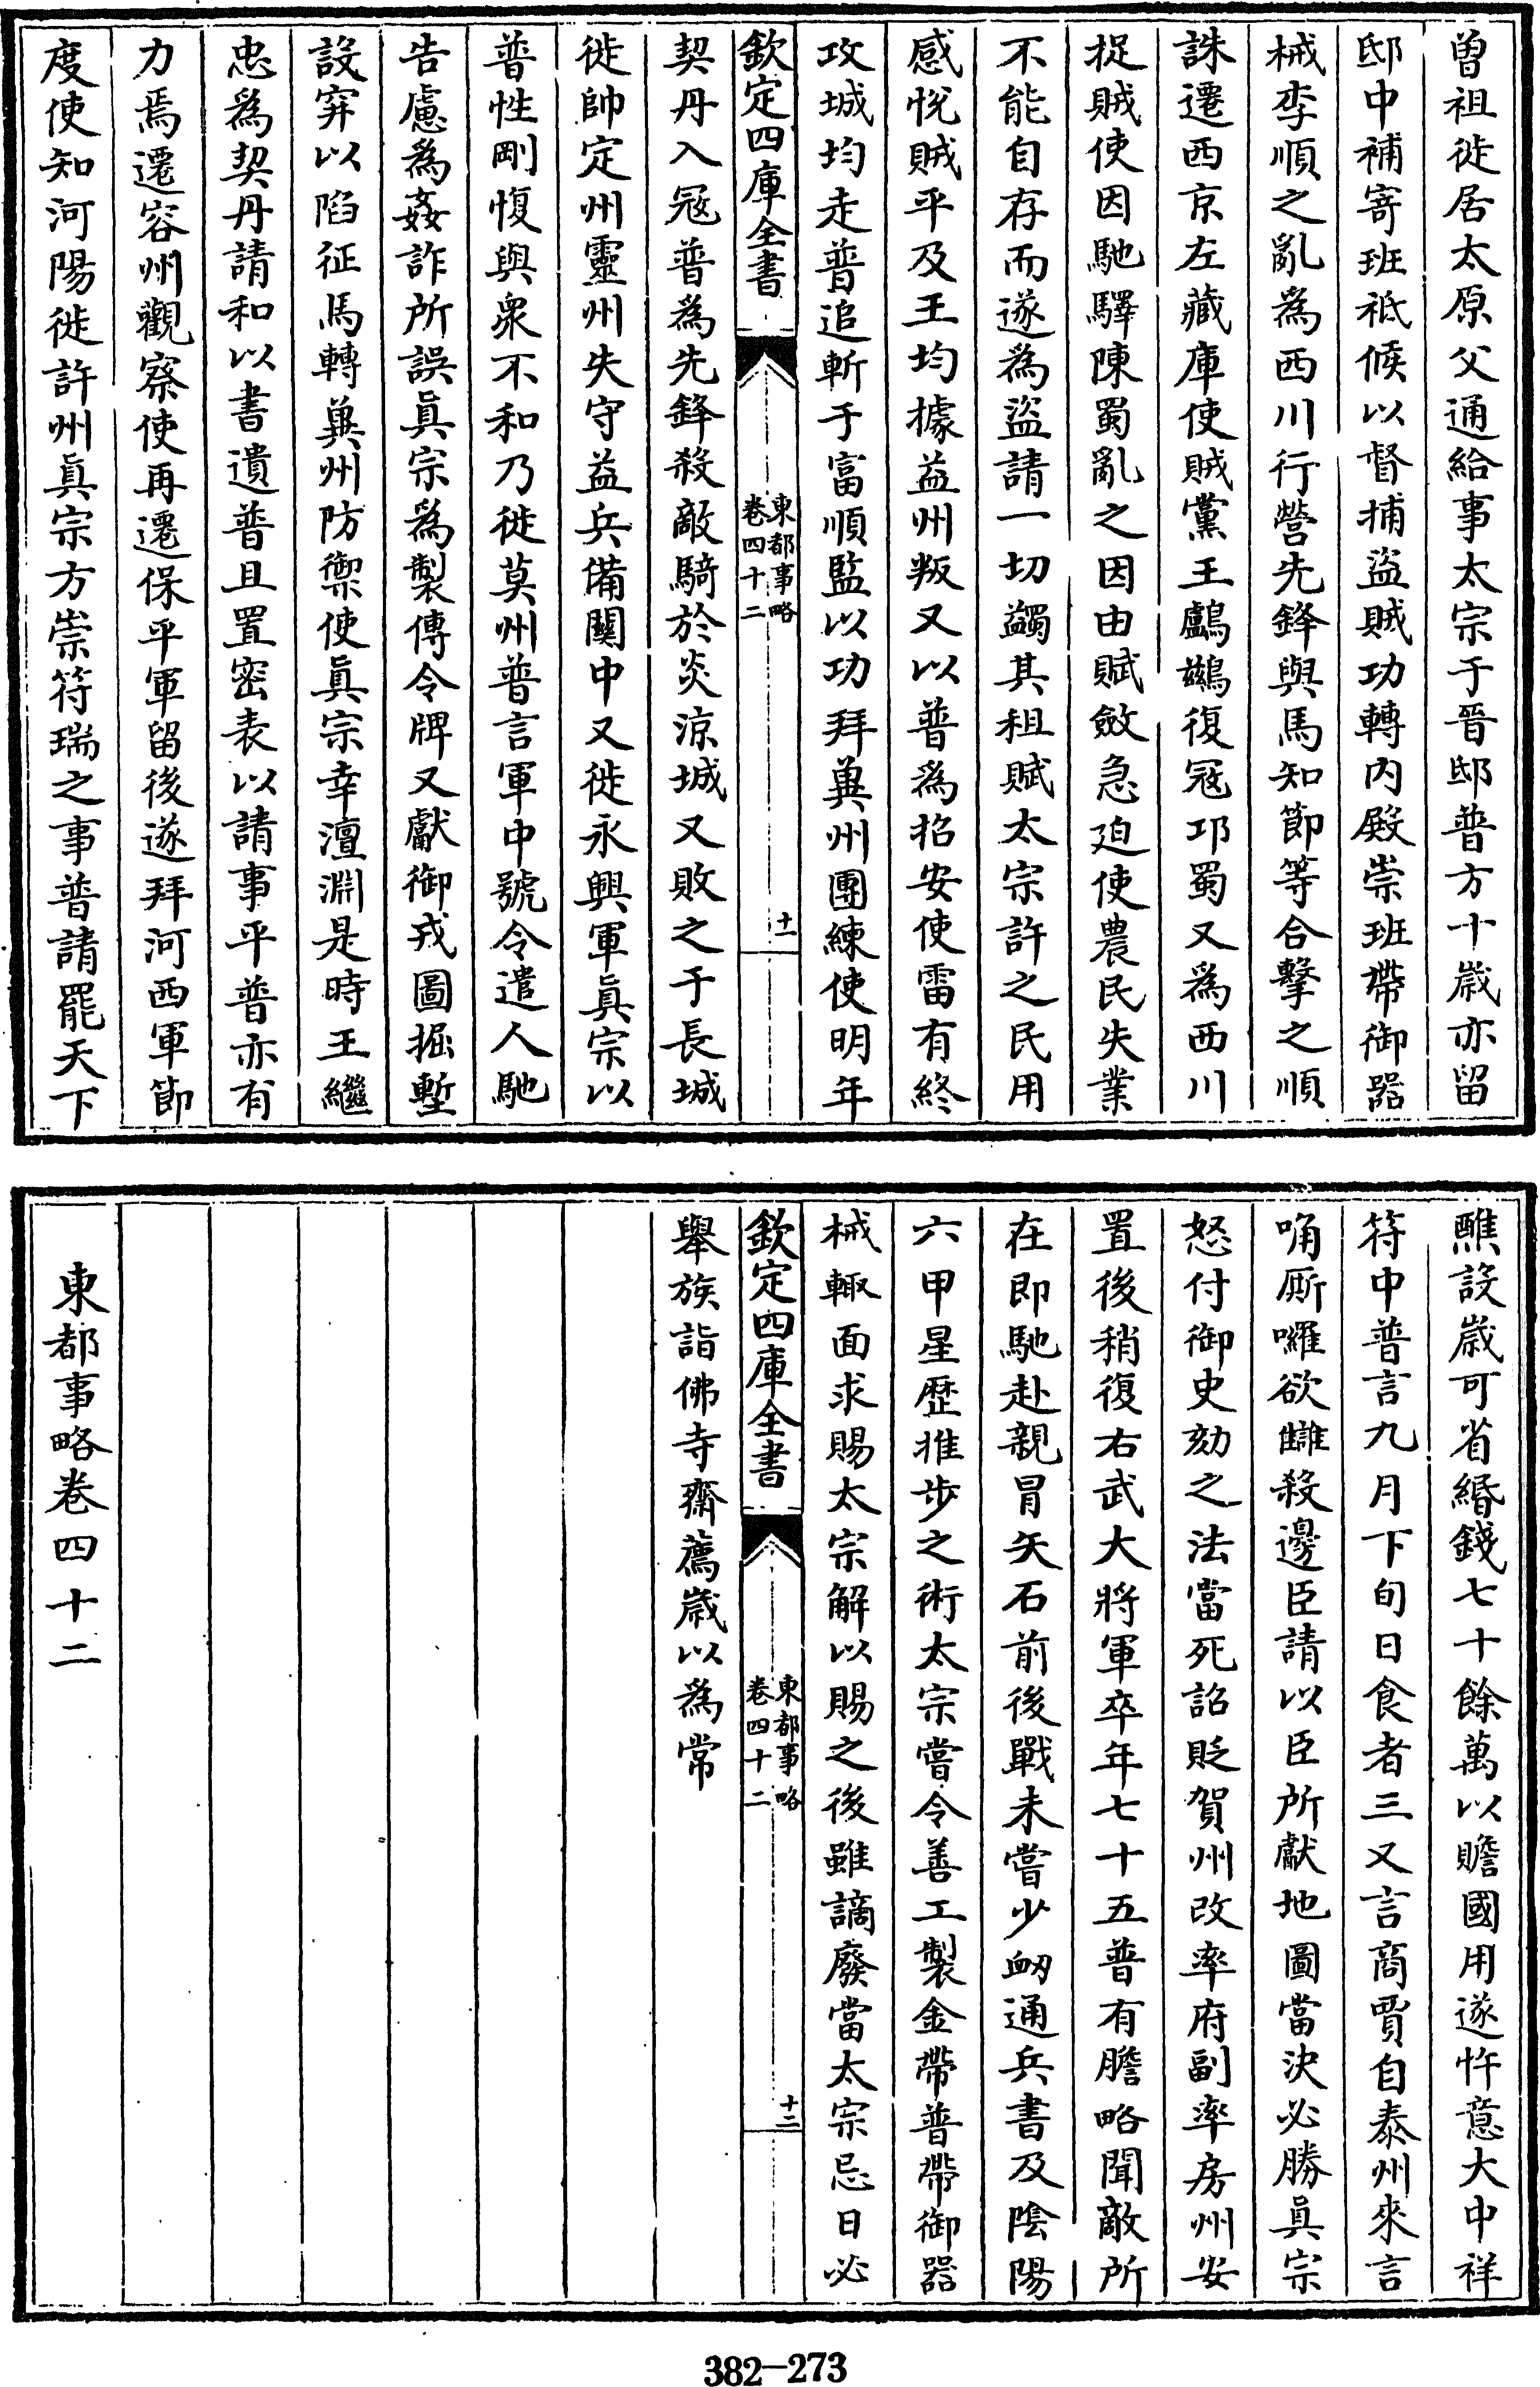 曾祖徙居太原父通給事太宗于晉邸普方十歲亦留
邸中補寄班祗候以督捕盜賊功轉内殿崇班帶御器
械李順之亂為西川行營先鋒與馬知節等合擊之順
誅遷西京左藏庫使賊黨王鸕鷀復冦邛蜀又為西川
捉賊使因馳驛陳蜀亂之因由賦斂急迫使農民失業
不能自存而遂為盜請一切蠲其租賦太宗許之民用
感悅賊平及王均據益州叛又以普為招安使雷有終
攻城均走普追斬于富順監以功拜兾州團練使明年
欽定四庫全書
東都事略
卷四十二
十一
契丹入冦普為先鋒殺敵騎於炎涼城又敗之于長城
徙帥定州靈州失守益兵備關中又徙永興軍真宗以
普性剛愎與衆不和乃徙莫州普言軍中號令遣人馳
告慮為姦詐所誤真宗為製傳令牌又獻御戎圖掘塹
設穽以陷征馬轉兾州防禦使真宗幸澶淵是時王繼
忠為契丹請和以書遺普且置密表以請事平普亦有
力焉遷容州觀察使再遷保平軍留後遂拜河西軍節
度使知河陽徙許州真宗方崇符瑞之事普請罷天下
醮設歲可省緡錢七十餘萬以贍國用遂忤意大中祥
符中普言九月下旬日食者三又言商賈自泰州來言
唃厮囉欲讎殺邊臣請以臣所獻地圖當決必勝真宗
怒付御史劾之法當死詔貶賀州改率府副率房州安
置後稍復右武大將軍卒年七十五普有膽略聞敵所
在即馳赴親冒矢石前後戰未嘗少衂通兵書及陰陽
六甲星歴推步之術太宗嘗令善工製金帶普帶御器
械輙面求賜太宗解以賜之後雖謫廢當太宗忌日必
欽定四庫全書
東都事略
卷四十二
十二
舉族詣佛寺齋薦歲以為常
東都事略卷四十二
382—273